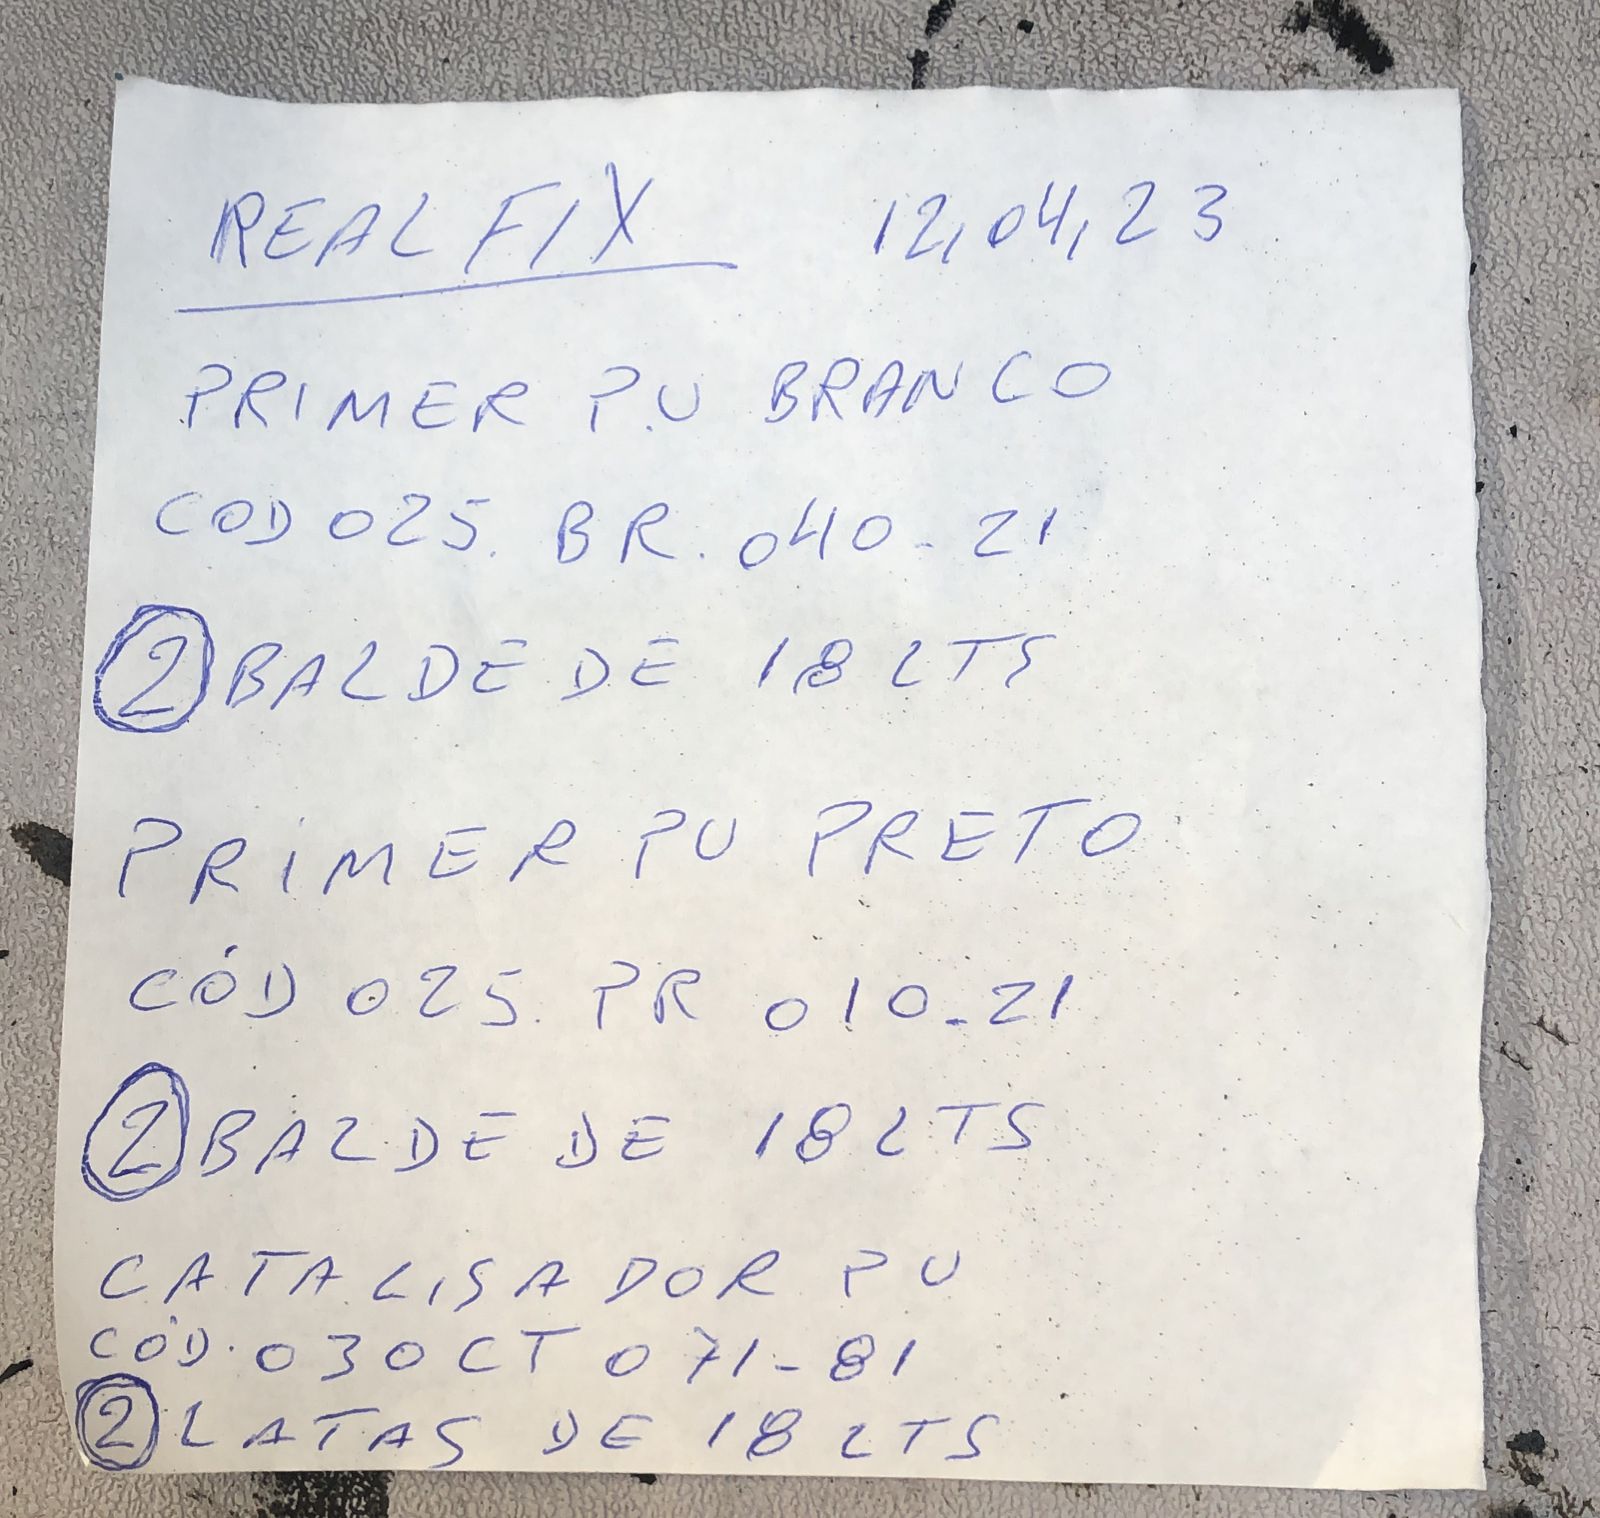 REAL FIX 12,04,23
PRIMER P.U BRANCO
COD 025. BR. 040-21
2 BALDE DE 18 LTS
PRIMER PU PRETO
CÓD 025. PR 010-21
2 BALDE DE 18 LTS
CATALISADOR PU
CÓD. 030 CT 071-81
2 LATAS DE 18 LTS